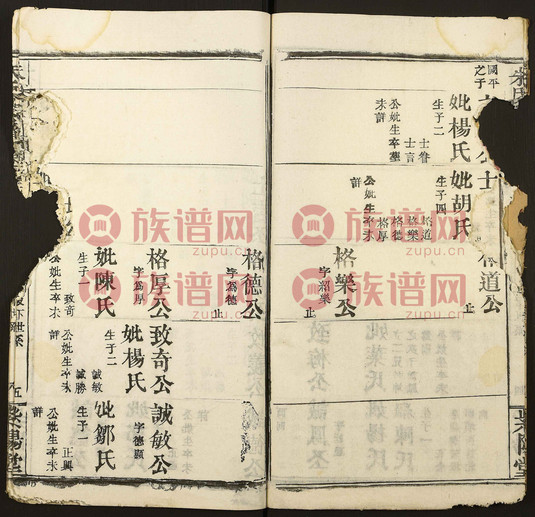 國平
之子
公士
妣楊氏
生子二
士眷
士言
公妣生卒塟
未詳
妣胡氏
生子四
格道
格樂
格德
格厚
公妣生卒未
詳
格道公
止
格樂公
字紹樂
止
紫陽堂
格德公
字爲德
止
格厚公
字爲厚
妣陳氏
生子一
致奇
公妣生卒未
詳
致奇公
妣楊氏
生子二
誠敏
誠勝
公妣生卒未
詳
誠敏公
字德顯
妣鄒氏
生子一
正興
公妣生卒未
詳
五
紫陽堂
族谱网
zupu.cn
族谱网
zupu.cn
族谱网
zupu.cn
族谱网
zupu.cn
族谱网
zupu.cn
族谱网
zupu.cn